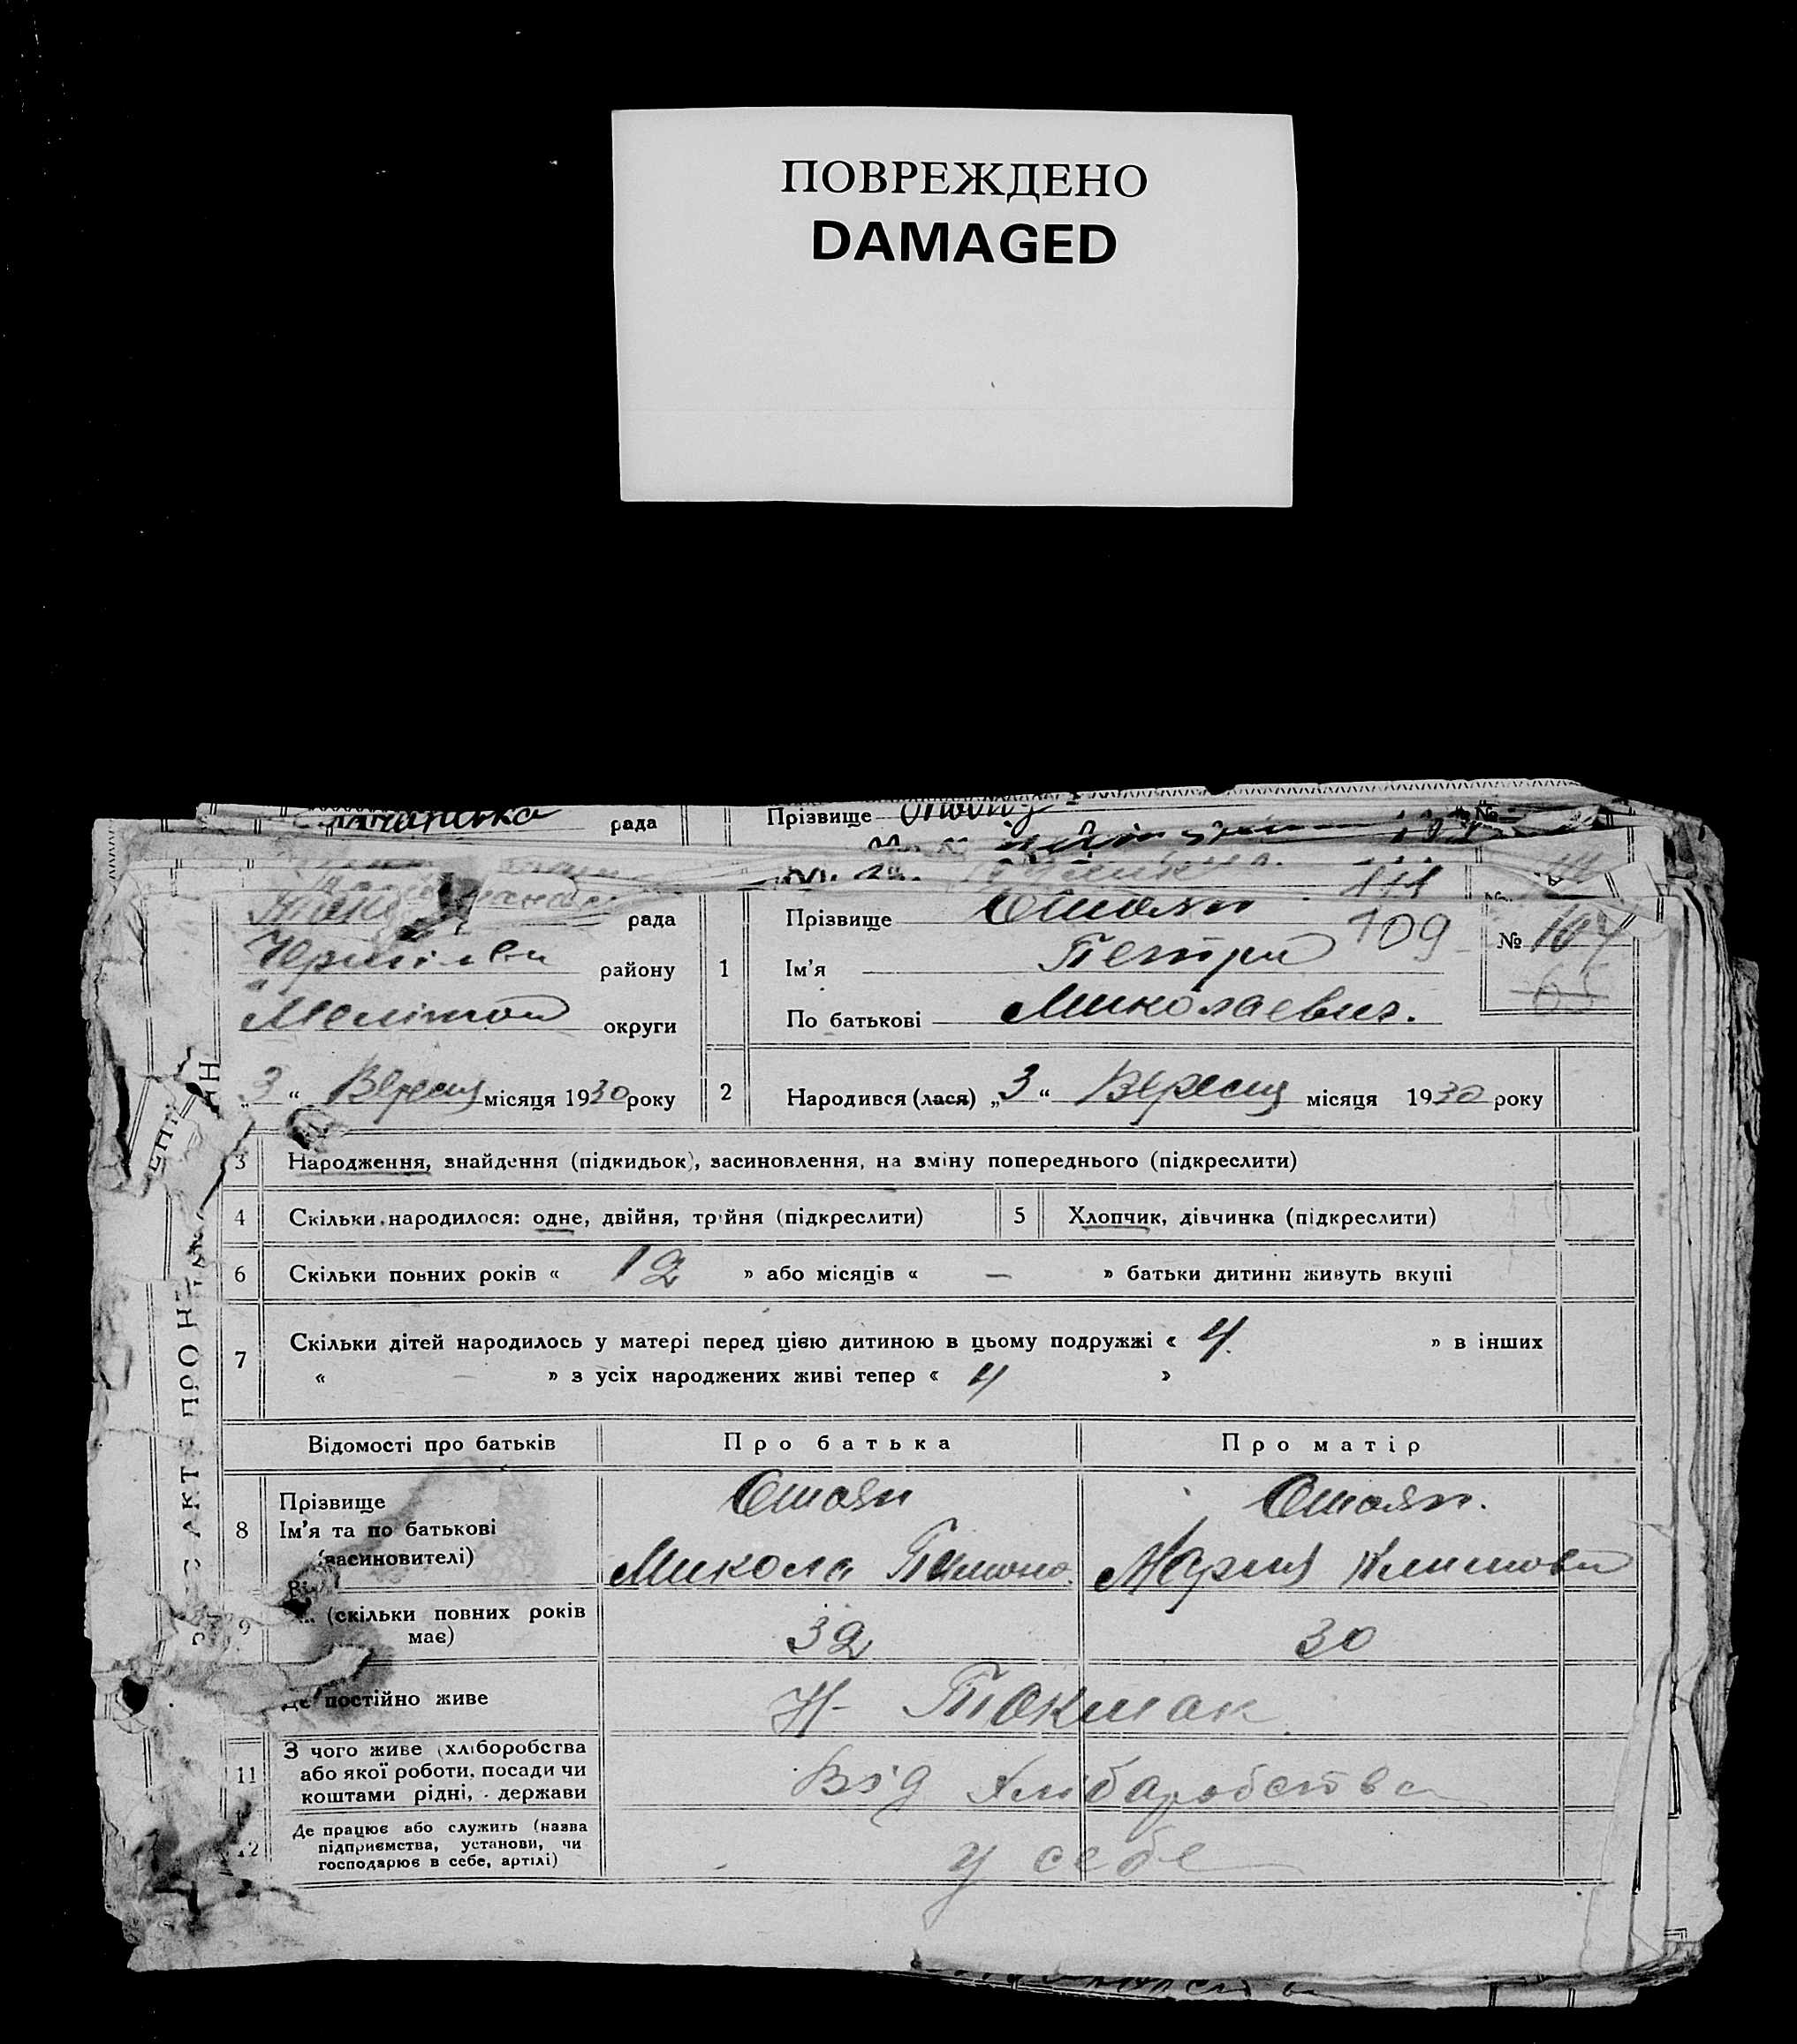 ПОВРЕЖДЕНО
DAMAGED
рада
Прізвище
№
рада
Прізвище Стоян 109
№ 107
65
району
1
Ім'я Петро
округи
По батькові Миколаевич.
„3“ Вересня місяця 1930 року
2
Народився (лася) „3“ Вересня місяця 1930 року
3 Народження, знайдення (підкидьок), засиновлення, на зміну попереднього (підкреслити)
4 Скільки народилося: одне, двійня, трійня (підкреслити)
5 Хлопчик, дівчинка (підкреслити)
6 Скільки повних років « 12 » або місяців « — » батьки дитини живуть вкупі
7 Скільки дітей народилось у матері перед цією дитиною в цьому подружжі « 4 » в інших
« » з усіх народжених живі тепер « 4 »
Відомості про батьків
Про батька
Про матір
8
Прізвище
Ім'я та по батькові
(засиновителі)
Стоян
Микола
Стоян.
Мария
9
(скільки повних років
має)
32
30
Де постійно живе
Н- Токмак
11
З чого живе (хліборобства
або якої роботи, посади чи
коштами рідні, держави
Від хлібаробства
12
Де працює або служить (назва
підприємства, установи, чи
господарює в себе, артілі)
у себе
АКТ ПРО Н